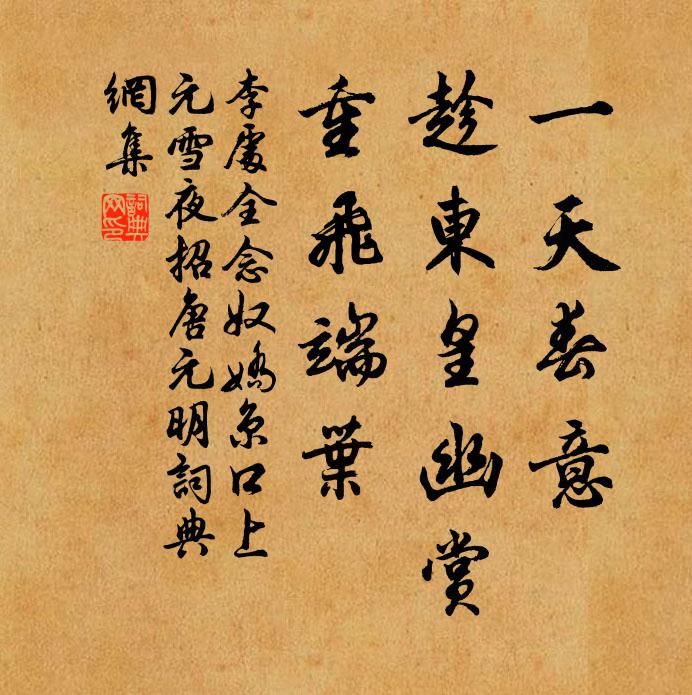 一天春意
趁東皇幽賞
重飛端葉
李處全念奴嬌京口上
元雪夜招唐元明詞典
網集
詞典
网印